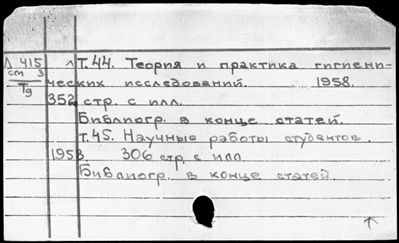 Л 415 Т.44. Теория и практика гигиени-
ст 3 ческих исследований. 1958.
Т9
352 стр. с илл.
Библиогр. в конце статей.
т.45. Научные работы студентов.
1958. 306 стр. с илл.
Библиогр. в конце статей.